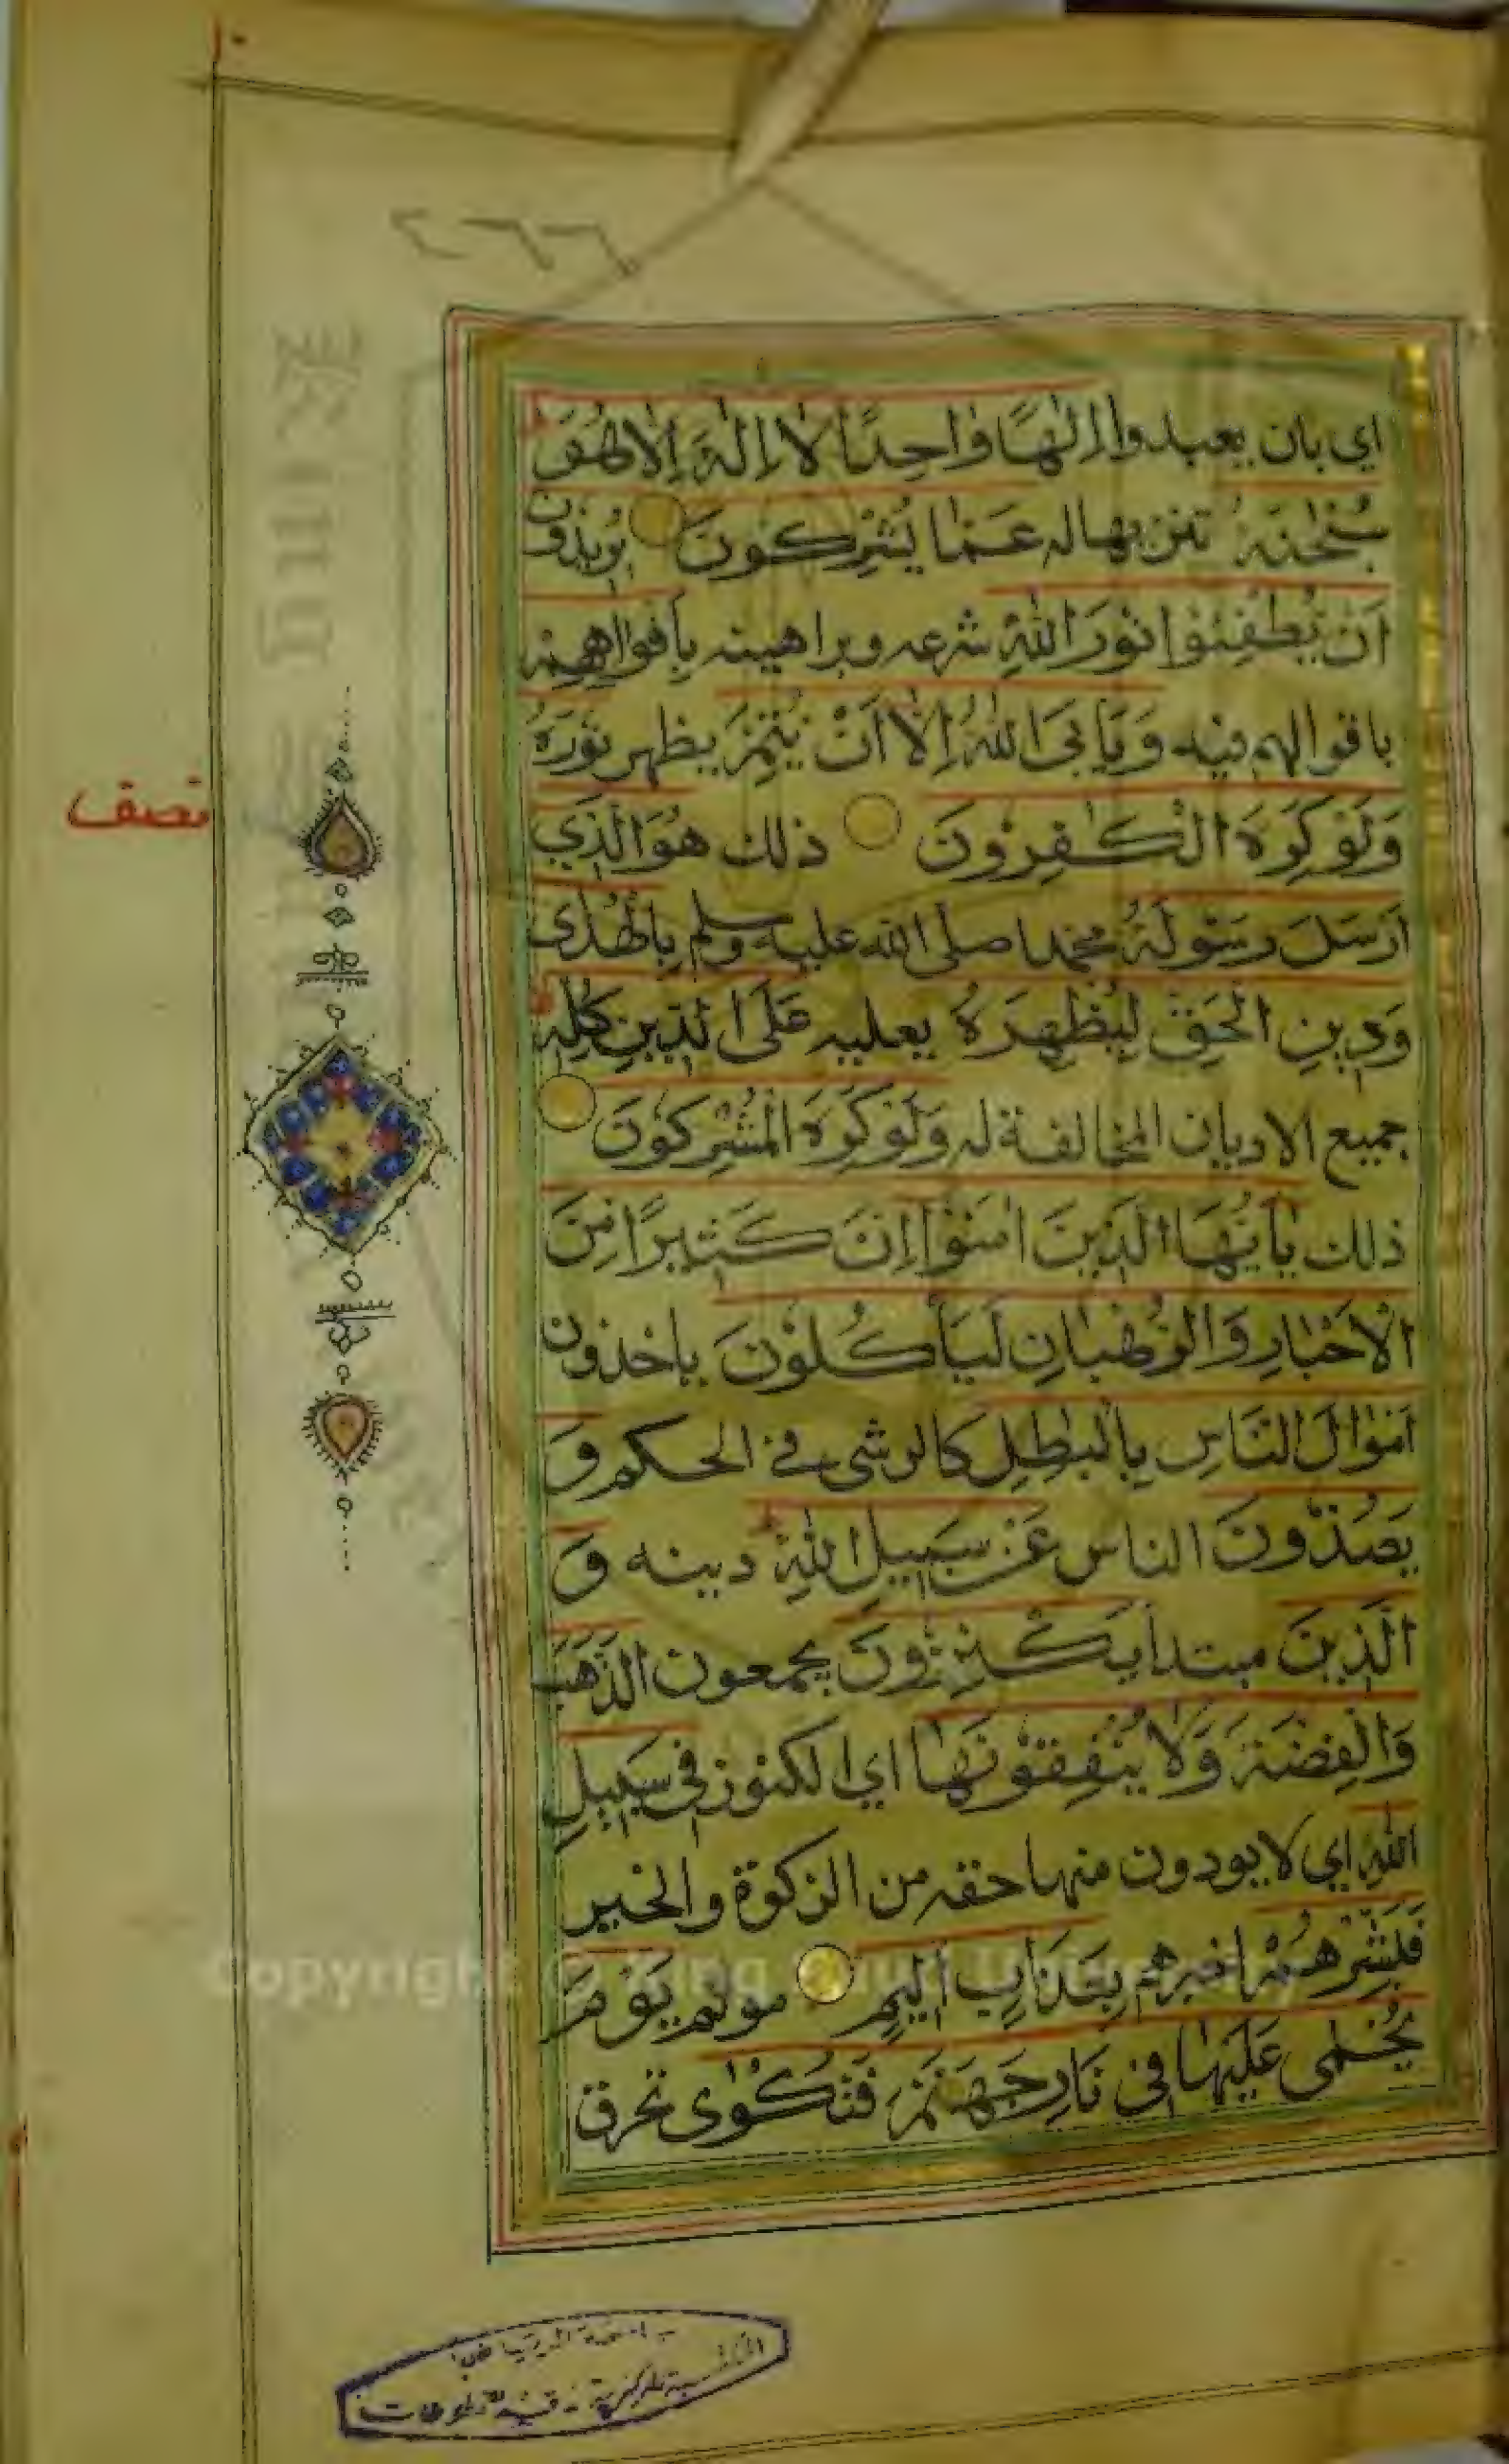 ٢٦٦
اي بان يعبدوا إِلٰهًا وَاحِدًا لَا إِلٰهَ إِلَّا هُوَ
سُبْحٰنَهُ تنزيها له عَمَّا يُشْرِكُونَ يُرِيدُونَ
اَنْ يُطْفِئُوْا نُوْرَ اللّٰهِ شرعه وبراهينه بِأَفْوَاهِهِمْ
باقوالهم فيه وَيَأْبَى اللّٰهُ إِلَّا اَنْ يُتِمَّ يظهر نُوْرَهُ
وَلَوْ كَرِهَ الْكٰفِرُوْنَ ذلك هُوَ الَّذِي
اَرْسَلَ رَسُوْلَهُ محمدا صلى الله عليه وسلم بِالْهُدٰى
وَدِينِ الْحَقِّ لِيُظْهِرَهُ يعليه عَلَى الدِّينِ كُلِّهِ
جميع الاديان المخالفة له وَلَوْ كَرِهَ الْمُشْرِكُوْنَ
ذلك يٰأَيُّهَا الَّذِيْنَ اٰمَنُوْا إِنَّ كَثِيْرًا مِنَ
الْاَحْبَارِ وَالرُّهْبَانِ لَيَأْكُلُوْنَ ياخذون
اَمْوَالَ النَّاسِ بِالْبٰطِلِ كالرشى في الحكم وَ
يَصُدُّوْنَ الناس عَنْ سَبِيلِ اللّٰهِ دينه وَ
الَّذِيْنَ مبتدا يَكْنِزُوْنَ يجمعون الذَّهَبَ
وَالْفِضَّةَ وَلَا يُنْفِقُوْنَهَا اي الكنوز فِي سَبِيْلِ
اللّٰهِ اي لا يودون منها حقه من الزكوة والخير
فَبَشِّرْهُمْ اخبرهم بِعَذَابٍ اَلِيمٍ مولم يَوْمَ
يُحْمٰى عَلَيْهَا فِي نَارِ جَهَنَّمَ فَتُكْوٰى تحرق
نصف
Copyright © King Saud University